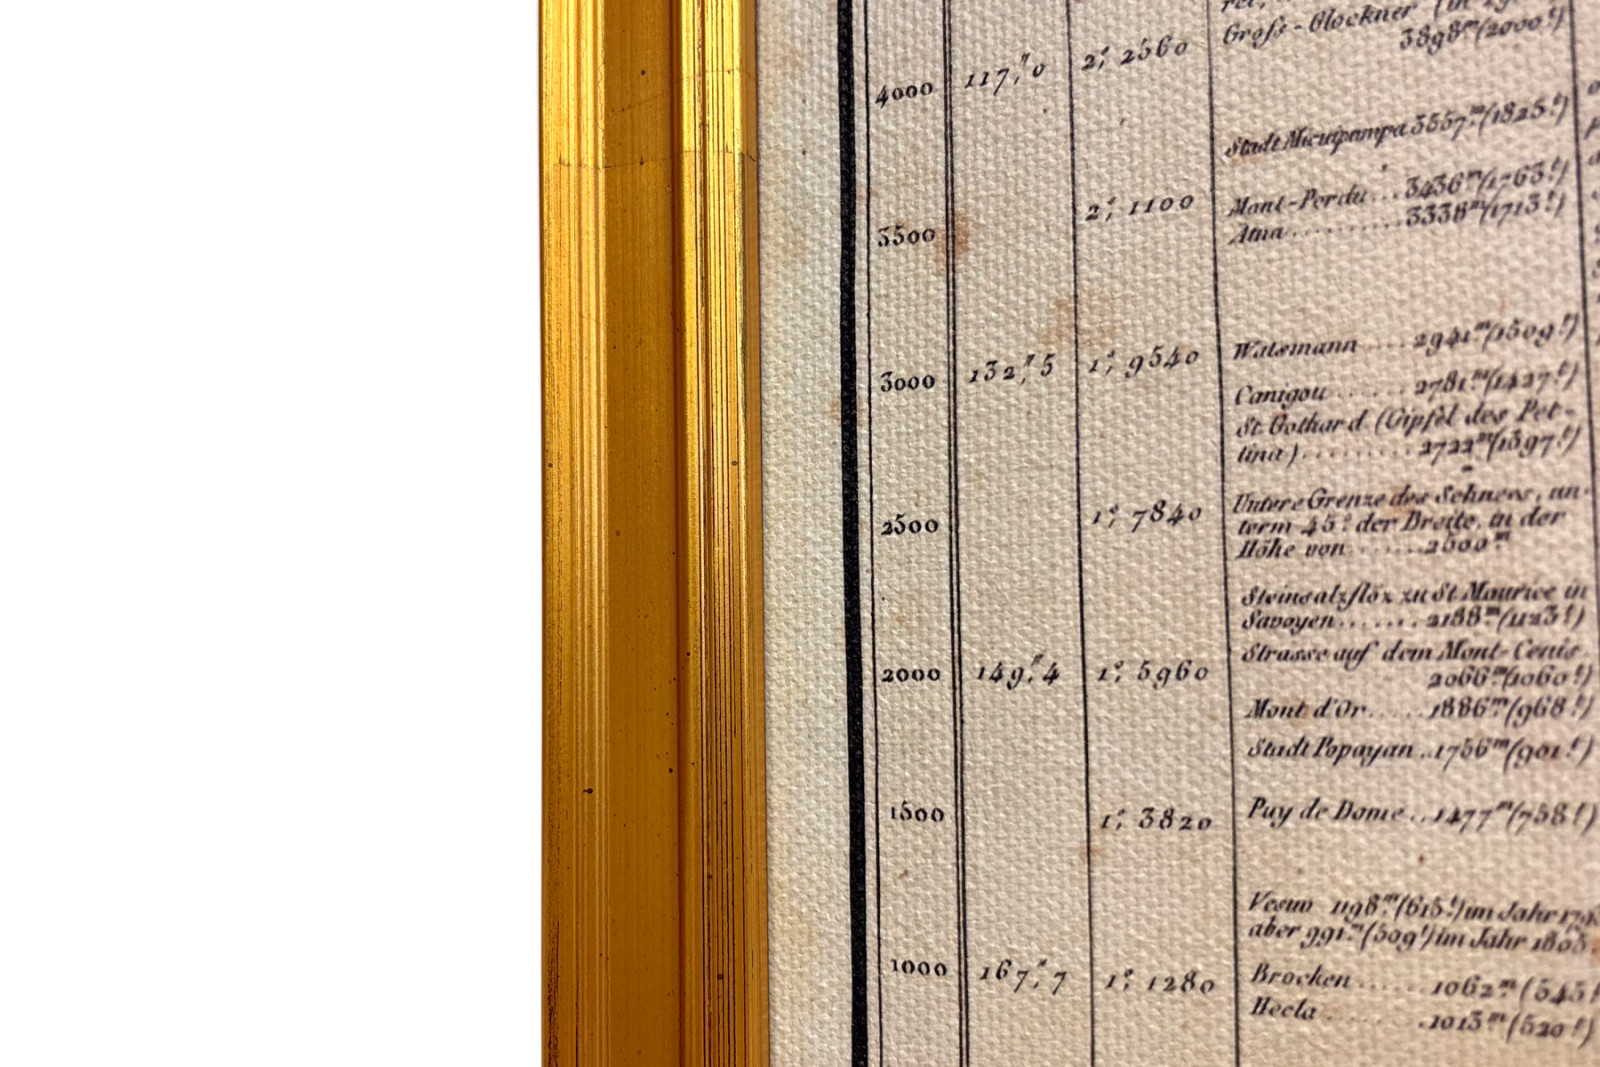 Groſs-Glockner
3898.ᵐ(2000.ᵗ)
4000
117,″0
2,° 2360
Stadt Micuipampa 3557.ᵐ(1825.ᵗ)
Mont-Perdu...3436.ᵐ(1763.ᵗ)
Ätna...........3338.ᵐ(1713.ᵗ)
2,° 1100
3500
Watzmann.....2941.ᵐ(1509.ᵗ)
3000
132,″5
1,° 9540
Canigou.......2781.ᵐ(1427.ᵗ)
St. Gothard (Gipfel des Pet-
tina).........2722.ᵐ(1397.ᵗ)
Untere Grenze des Schnees, un-
term 45.° der Breite, in der
Höhe von.......2500.ᵐ
2500
1,° 7840
Steinsalzflöz zu St. Maurice in
Savoyen.......2188.ᵐ(1123.ᵗ)
Strasse auf dem Mont-Cenis.
2066.ᵐ(1060.ᵗ)
2000
149,″4
1,° 5960
Mont d'Or.....1886.ᵐ(968.ᵗ)
Stadt Popayan..1756.ᵐ(901.ᵗ)
1500
1,° 3820
Puy de Dome..1477.ᵐ(758.ᵗ)
Vesuv 1198.ᵐ(615.ᵗ) im Jahr
aber 991.ᵐ(509.ᵗ) im Jahr 1805.
1000
167,″7
1,° 1280
Brocken.......1062.ᵐ(545.ᵗ
Hecla.........1013.ᵐ(520.ᵗ)